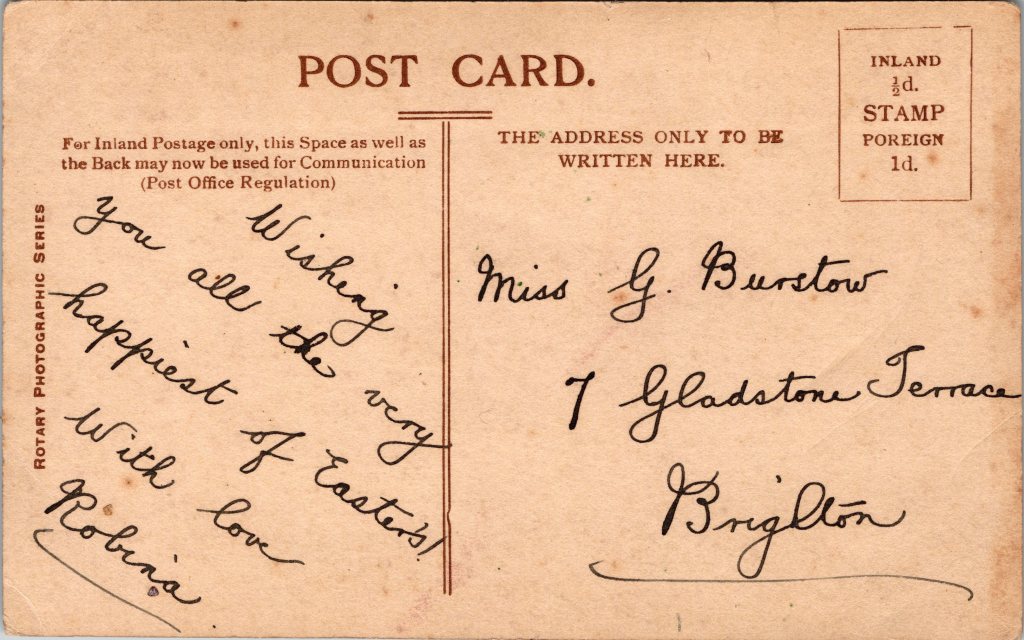 POST CARD.
For Inland Postage only, this Space as well as
the Back may now be used for Communication
(Post Office Regulation)
THE ADDRESS ONLY TO BE
WRITTEN HERE.
INLAND
½d.
STAMP
FOREIGN
1d.
ROTARY PHOTOGRAPHIC SERIES
Wishing
you all the very
happiest of Easter's!
With love
Robina
Miss G. Burstow
7 Gladstone Terrace
Brighton